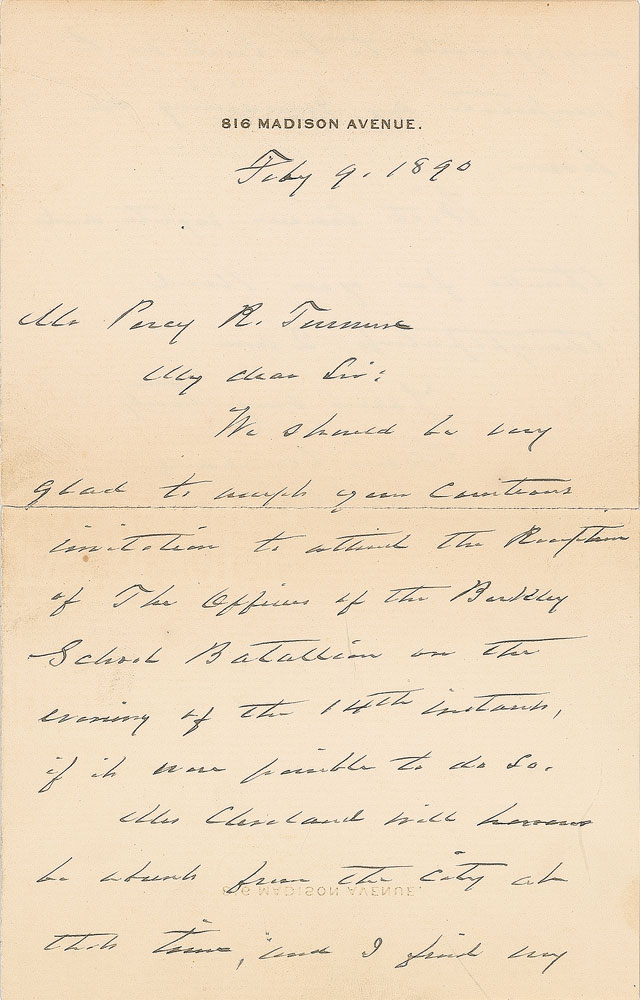 816 MADISON AVENUE.
Feby 9. 1890
Mr Percy R. Turnure
My dear Sir:
We should be very
glad to accept your courteous
invitation to attend the Reception
of The Officers of the Berkley
School Batallion on the
evening of the 14th instant,
if it were possible to do so.
Mrs Cleveland will however
be absent from the city at
that time, and I find my
816 MADISON AVENUE.